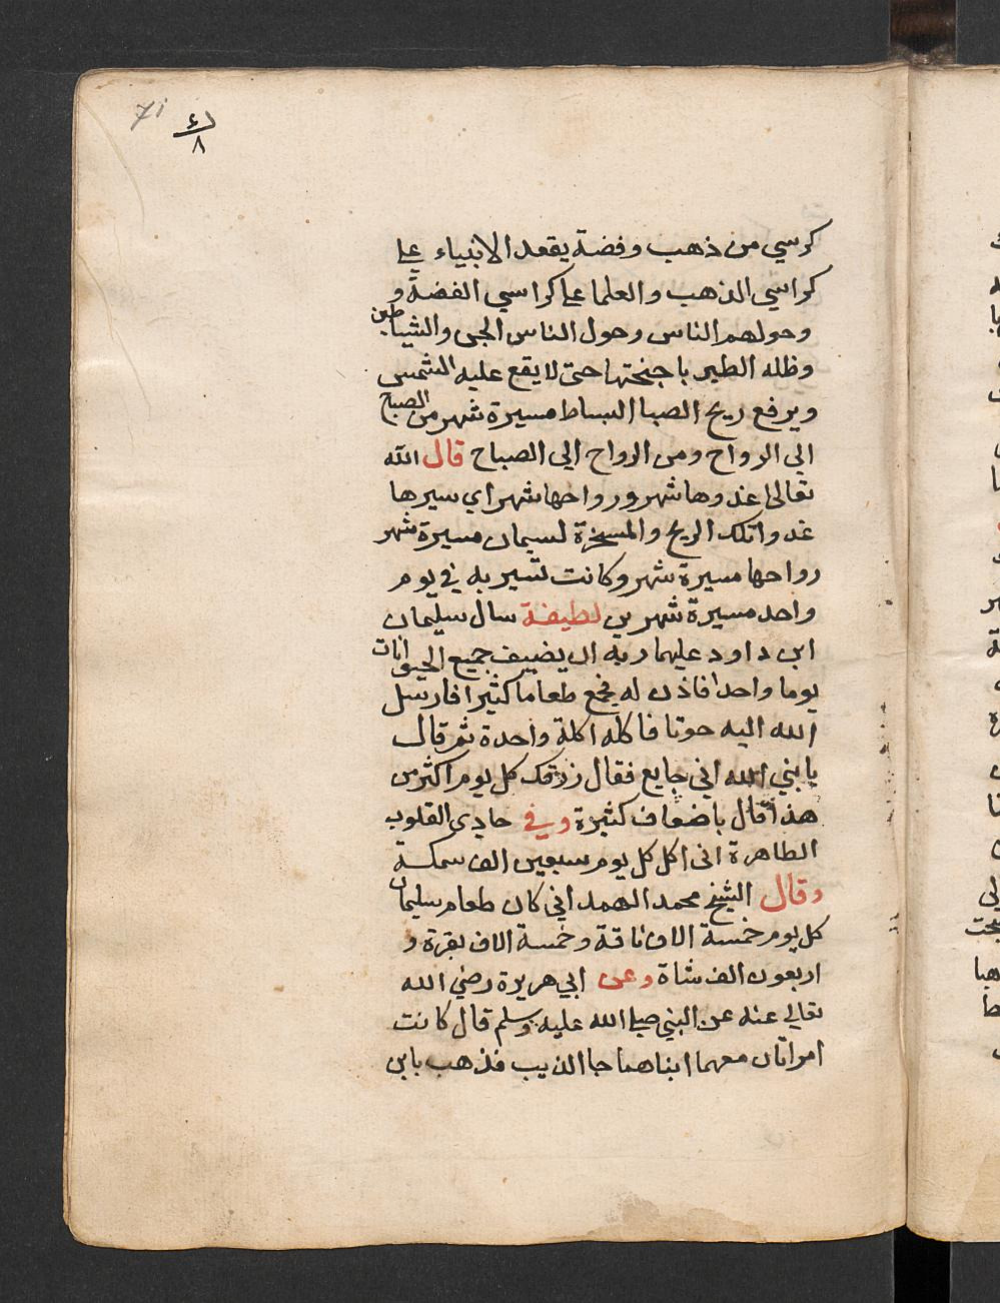 71
كرسي من ذهب وفضة يقعد الانبياء علي
كراسي الذهب والعلما علي كراسي الفضة و
وحولهم الناس وحول الناس الجن والشياطين
وظله الطير باجنحتها حتي لا يقع عليه الشمس
ويرفع ريح الصبا البساط مسيرة شهر من الصباح
الي الرواح ومن الرواح الي الصباح قال الله
تعالي غدوها شهر ورواحها شهر اي سيرها
غدوا تلك الريح والمسخرة لسيمان مسيرة شهر
رواحها مسيرة شهر وكانت تسير به في يوم
واحد مسيرة شهرين لطيفة سال سليمان
ابن داود عليهما ربه ان يضيف جميع الحيوانات
يوما واحدا فاذن له فجمع طعاما كثيرا فارسل
الله اليه حوتا فاكله اكلة واحدة ثم قال
يا نبي الله اني جايع فقال رزقك كل يوم اكثر من
هذا قال باضعاف كثيرة وفي حادي القلوب
الطاهرة اني اكل كل يوم سبعين الف سمكة
وقال الشيخ محمد الهمداني كان طعام سليمان
كل يوم خمسة الاف ناقة وخمسة الاف بقرة و
اربعون الف شاة وعن ابي هريرة رضي الله
تعالي عنه عن النبي صلي الله عليه وسلم قال كانت
امراتان معهما ابناهما جا الذيب فذهب بابن